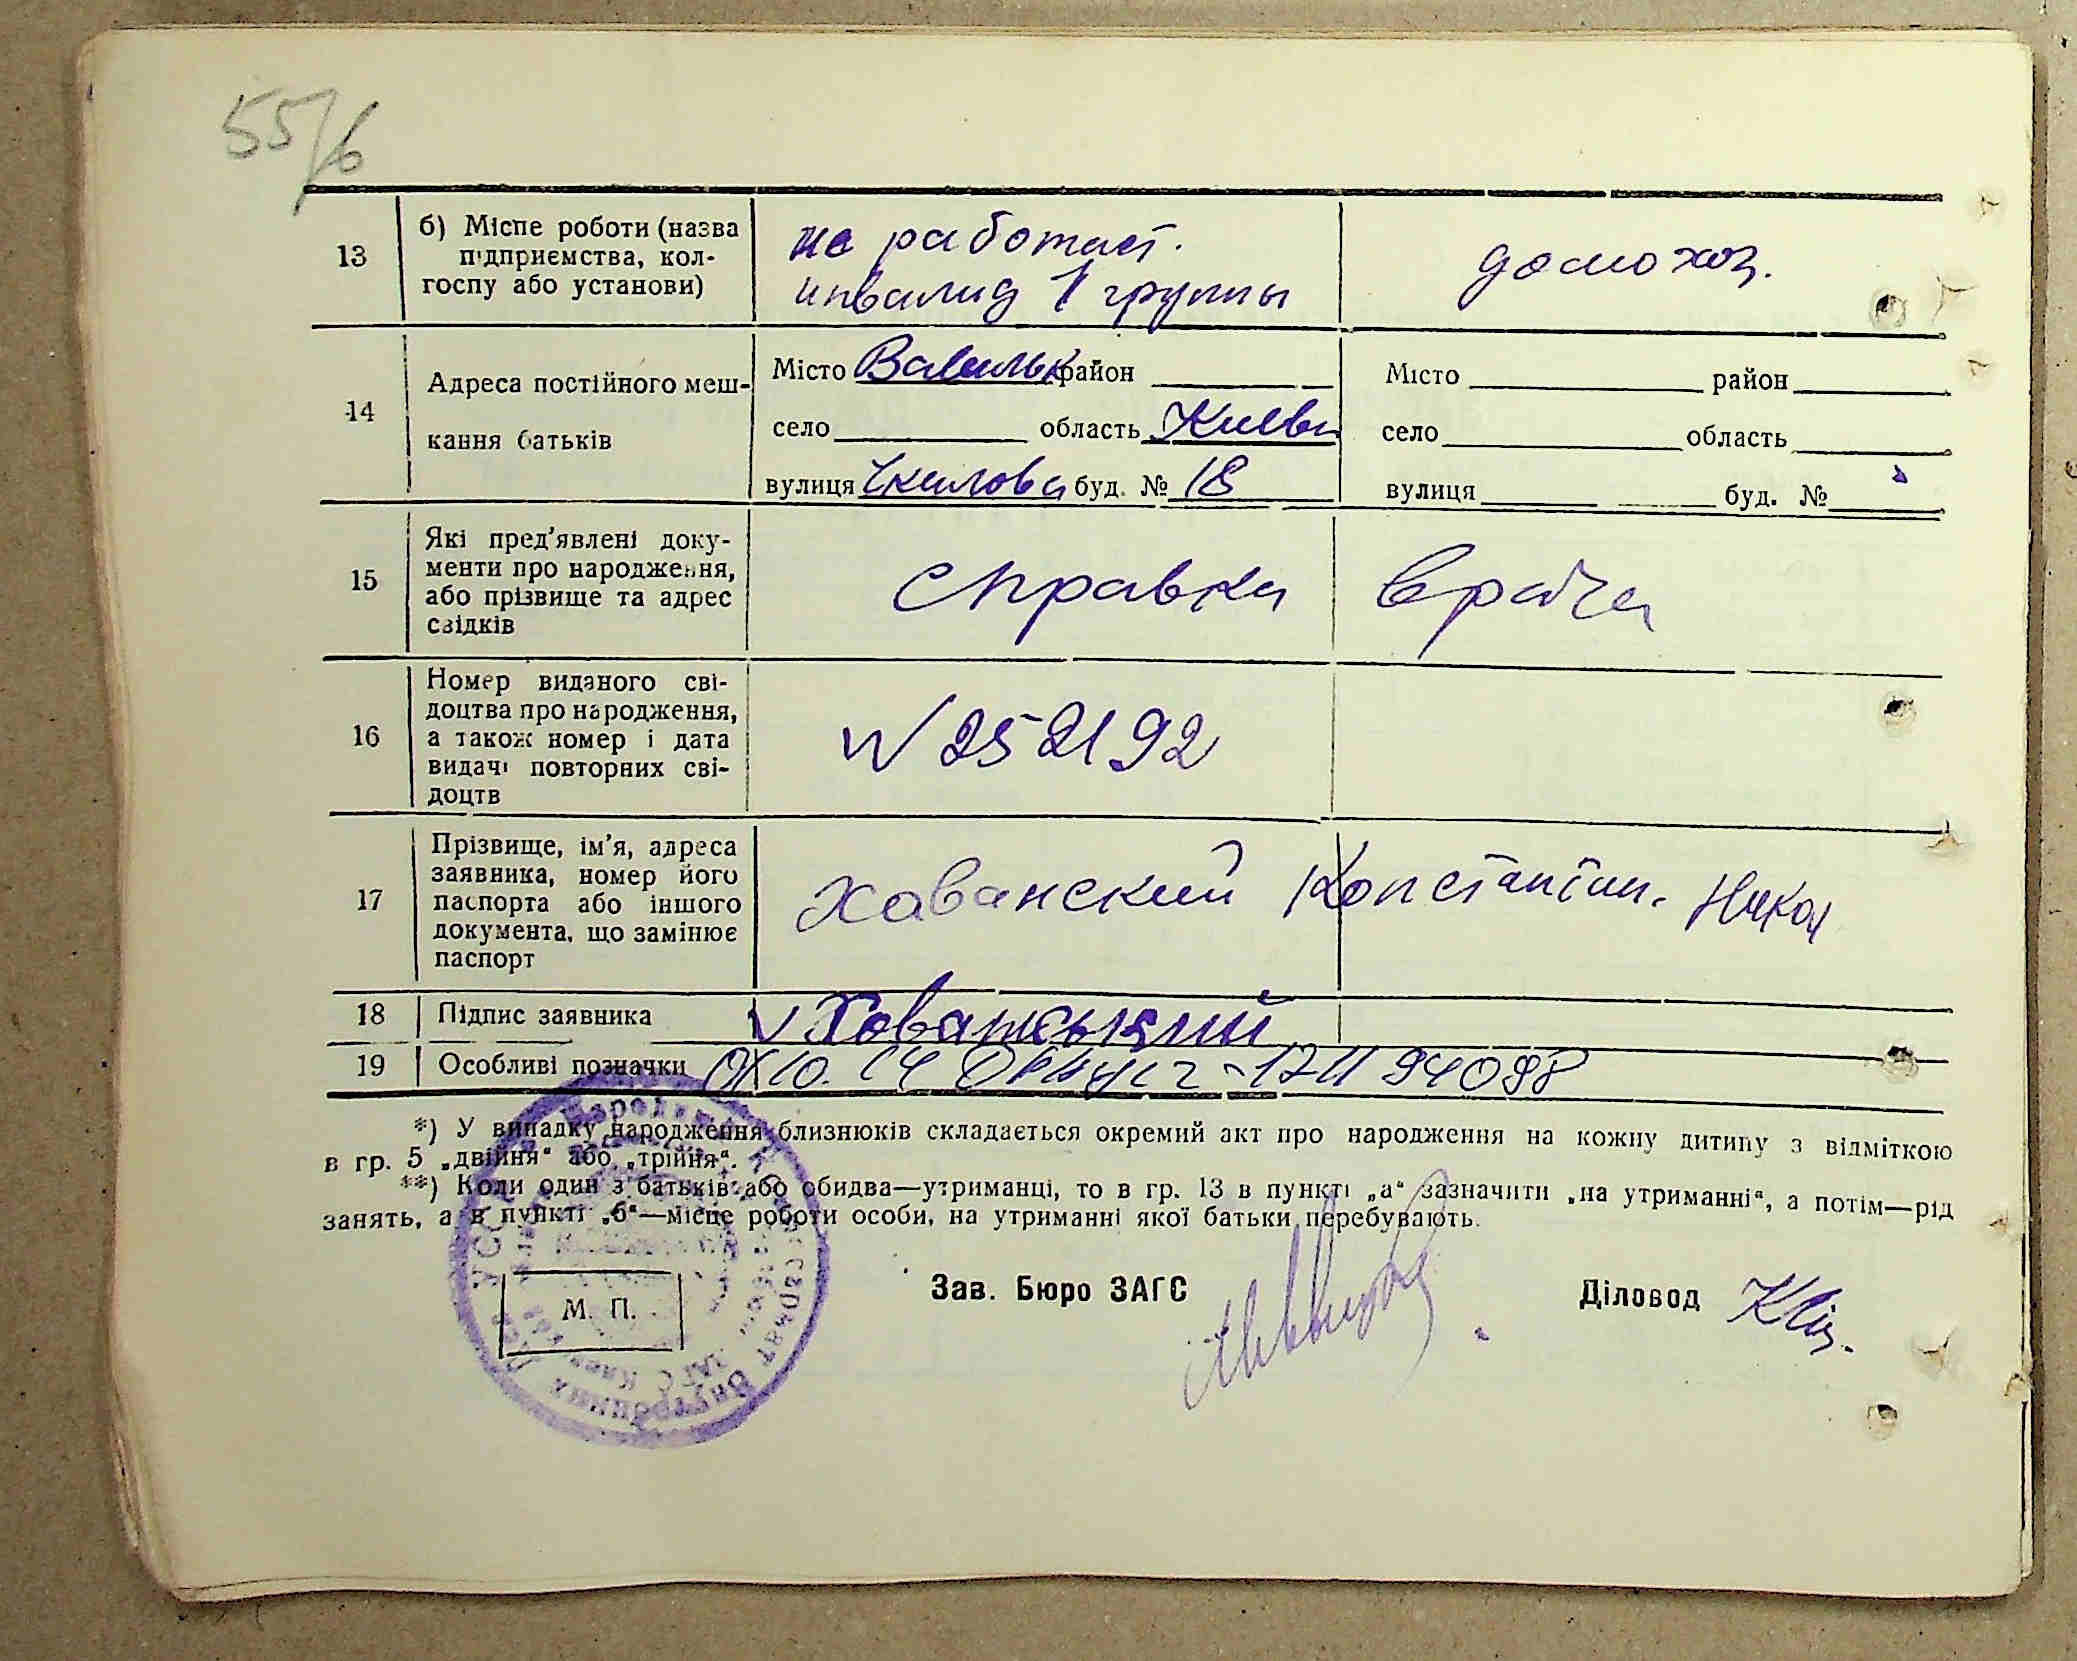 55/6
13
б) Місце роботи (назва
підприємства, кол-
госпу або установи)
не работает.
инвалид 1 группы
домохоз.
14
Адреса постійного меш-
кання батьків
Місто Васильк район
село область Киевс
вулиця Чкалова буд. № 18
Місто район
село область
вулиця буд. №
15
Які пред'явлені доку-
менти про народження,
або прізвище та адрес
свідків
справка врача
16
Номер виданого сві-
доцтва про народження,
а також номер і дата
видачі повторних сві-
доцтв
N 252192
17
Прізвище, ім'я, адреса
заявника, номер його
паспорта або іншого
документа, що замінює
паспорт
Хаванский Константин. Никол
18
Підпис заявника
Хованський
19
Особливі позначки
94098
*) У випадку народження близнюків складається окремий акт про народження на кожну дитину з відміткою
в гр. 5 „двійня“ або „трійня“.
**) Коли один з батьків або обидва—утриманці, то в гр. 13 в пункті „а“ зазначити „на утриманні“, а потім—рід
занять, а в пункті „б“—місце роботи особи, на утриманні якої батьки перебувають.
М. П.
Зав. Бюро ЗАГС
Діловод